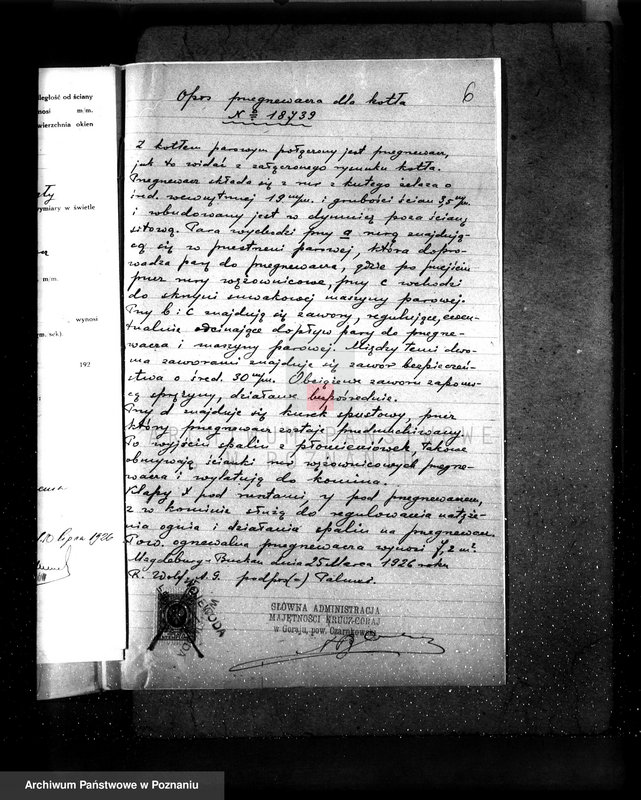 6
Opis przegrzewacza dla kotła
№ 18739
Z kotłem parowym połączony jest przegrzewacz,
jak to widać z załączonego rysunku kotła.
Przegrzewacz składa się z rur z kutego żelaza o
śred. wewnętrznej 19 m/m. i grubości ścian 3,5 m/m.
i wbudowany jest w dymnicę poza ścianą
sitową. Para wychodzi przy a rurą znajdują-
cą się w przestrzeni parowej, która dopro-
wadza parę do przegrzewacza, gdzie po przejściu
przez rury wężownicowe, przy c wchodzi
do skrzyni suwakowej maszyny parowej.
Przy b i c znajdują się zawory, regulujące, ewen-
tualnie odcinające dopływ pary do przegrze-
wacza i maszyny parowej. Między temi dwo-
ma zaworami znajduje się zawór bezpieczeń-
stwa o śred. 30 m/m. Obciążenie zaworu zapomo-
cą sprężyny, działanie bezpośrednie.
Przy d znajduje się kurek spustowy, przez
który przegrzewacz zostaje przedmuchiwany.
Po wyjściu spalin z płomieniówek takowe
obmywają ścianki rur wężownicowych przegrze-
wacza i wylatują do komina.
Klapy X pod rusztami, y pod przegrzewaczem,
z w kominie służą do regulowania natęże-
nia ognia i działania spalin na przegrzewacz.
Pow. ogrzewalna przegrzewacza wynosi 7,2 m².
Magdeburg-Buckau dnia 25 Marca 1926 roku
R. Wolf A.G. podpis(-)
GŁÓWNA ADMINISTRACJA
MAJĘTNOŚCI KRUCZ-GORAJ
w Goraju, pow. Czarnkowski
ległość od ściany
nosi m/m.
wierzchnia okien
ymiary w świetle
m/m.
wynosi
m. sek).
192
lipca 1926
ARCHIWUM PAŃSTWOWE
W POZNANIU
Archiwum Państwowe w Poznaniu